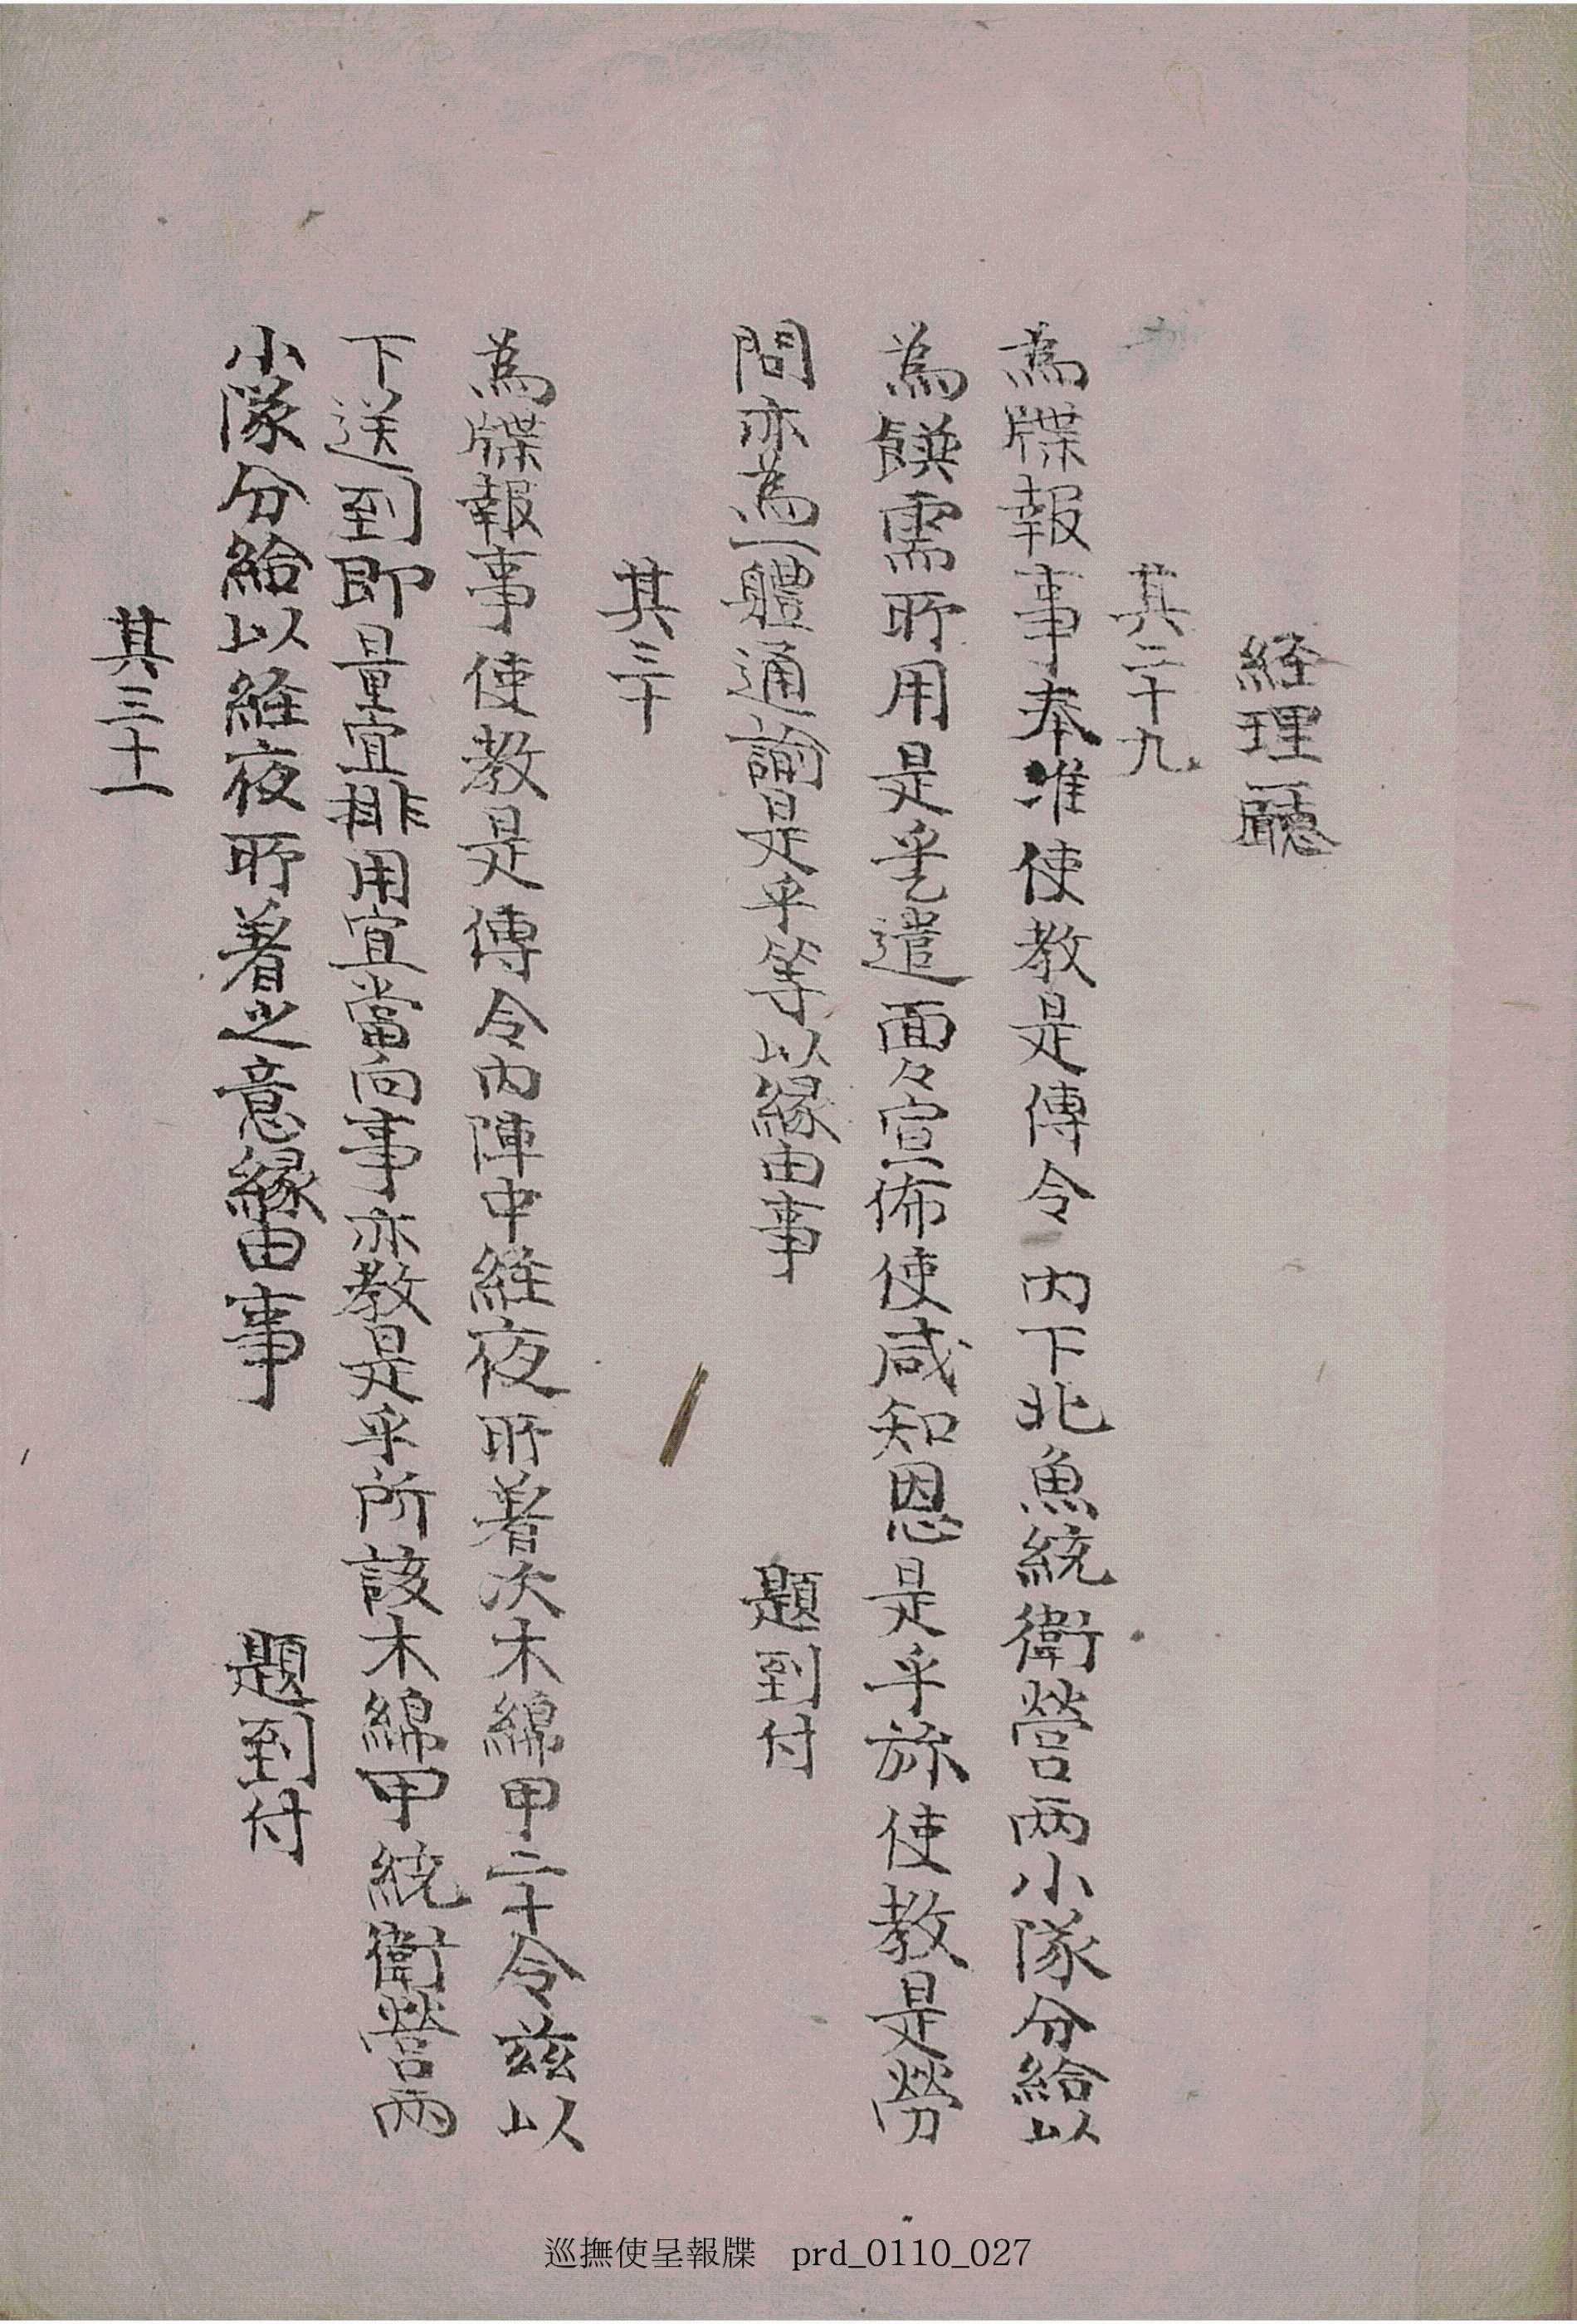 経理廳
其二十九
為牒報事奉准使教是傳令內下北魚統衛營两小隊分給以
為饌需所用是乎乙遣面々宣佈使咸知恩是乎旀使教是勞
問亦為一體通諭是乎等以緣由事 題到付
其三十
為牒報事使教是傳令內陣中經夜所着次木綿甲二十令兹以
下送到即量宜排用宜當向事亦教是乎所該木綿甲統衛營两
小隊分給以經夜所着之意緣由事 題到付
其三十一
巡撫使呈報牒 prd_0110_027